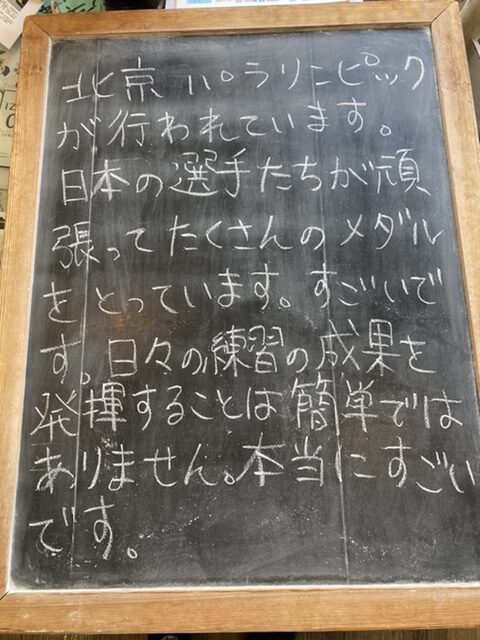 北京パラリンピック
が行われています。
日本の選手たちが頑
張ってたくさんのメダル
をとっています。すごいで
す。日々の練習の成果を
発揮することは簡単では
ありません。本当にすごい
です。